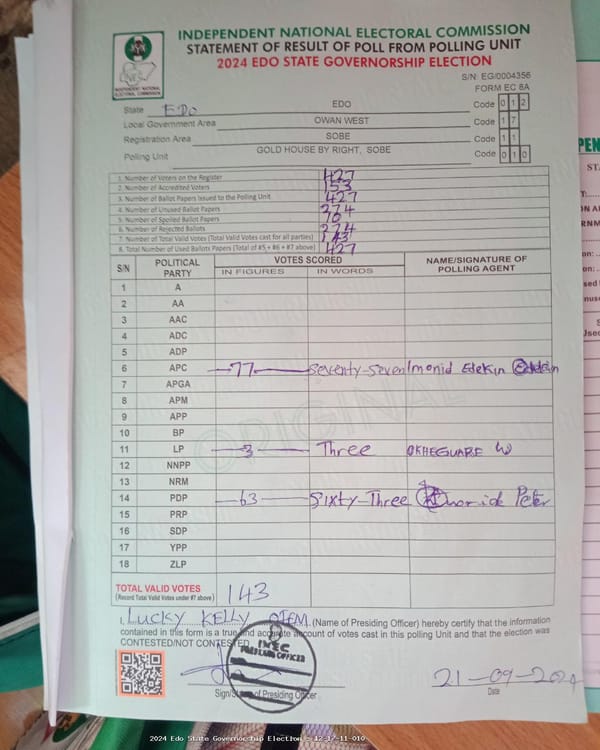 INDEPENDENT NATIONAL ELECTORAL COMMISSION
STATEMENT OF RESULT OF POLL FROM POLLING UNIT
2024 EDO STATE GOVERNORSHIP ELECTION
INDEPENDENT NATIONAL ELECTORAL COMMISSION
S/N: EG/0004356
FORM EC 8A
State EDO EDO Code 0 1 2
Local Government Area OWAN WEST Code 1 7
Registration Area SOBE Code 1 1
Polling Unit GOLD HOUSE BY RIGHT, SOBE Code 0 1 0
1. Number of Voters on the Register 427
2. Number of Accredited Voters 153
3. Number of Ballot Papers Issued to the Polling Unit 427
4. Number of Unused Ballot Papers 274
5. Number of Spoiled Ballot Papers
6. Number of Rejected Ballots
7. Number of Total Valid Votes (Total Valid Votes cast for all parties) 143
8. Total Number of Used Ballots Papers (Total of #5 + #6 + #7 above) 427
S/N POLITICAL PARTY VOTES SCORED NAME/SIGNATURE OF POLLING AGENT
IN FIGURES IN WORDS
1 A
2 AA
3 AAC
4 ADC
5 ADP
6 APC 77 Seventy-Seven Imonid Edekin
7 APGA
8 APM
9 APP
10 BP
11 LP 3 Three OKHEGUARE W
12 NNPP
13 NRM
14 PDP 63 Sixty-Three Peter
15 PRP
16 SDP
17 YPP
18 ZLP
ORIGINAL
TOTAL VALID VOTES 143
(Record Total Valid Votes under #7 above)
I, LUCKY KELLY (Name of Presiding Officer) hereby certify that the information
contained in this form is a true and accurate account of votes cast in this polling Unit and that the election was
CONTESTED/NOT CONTESTED
INEC
PRESIDING OFFICER
21-09-2024
Sign/Stamp of Presiding Officer Date
2024 Edo State Governorship Election - 12-17-11-010